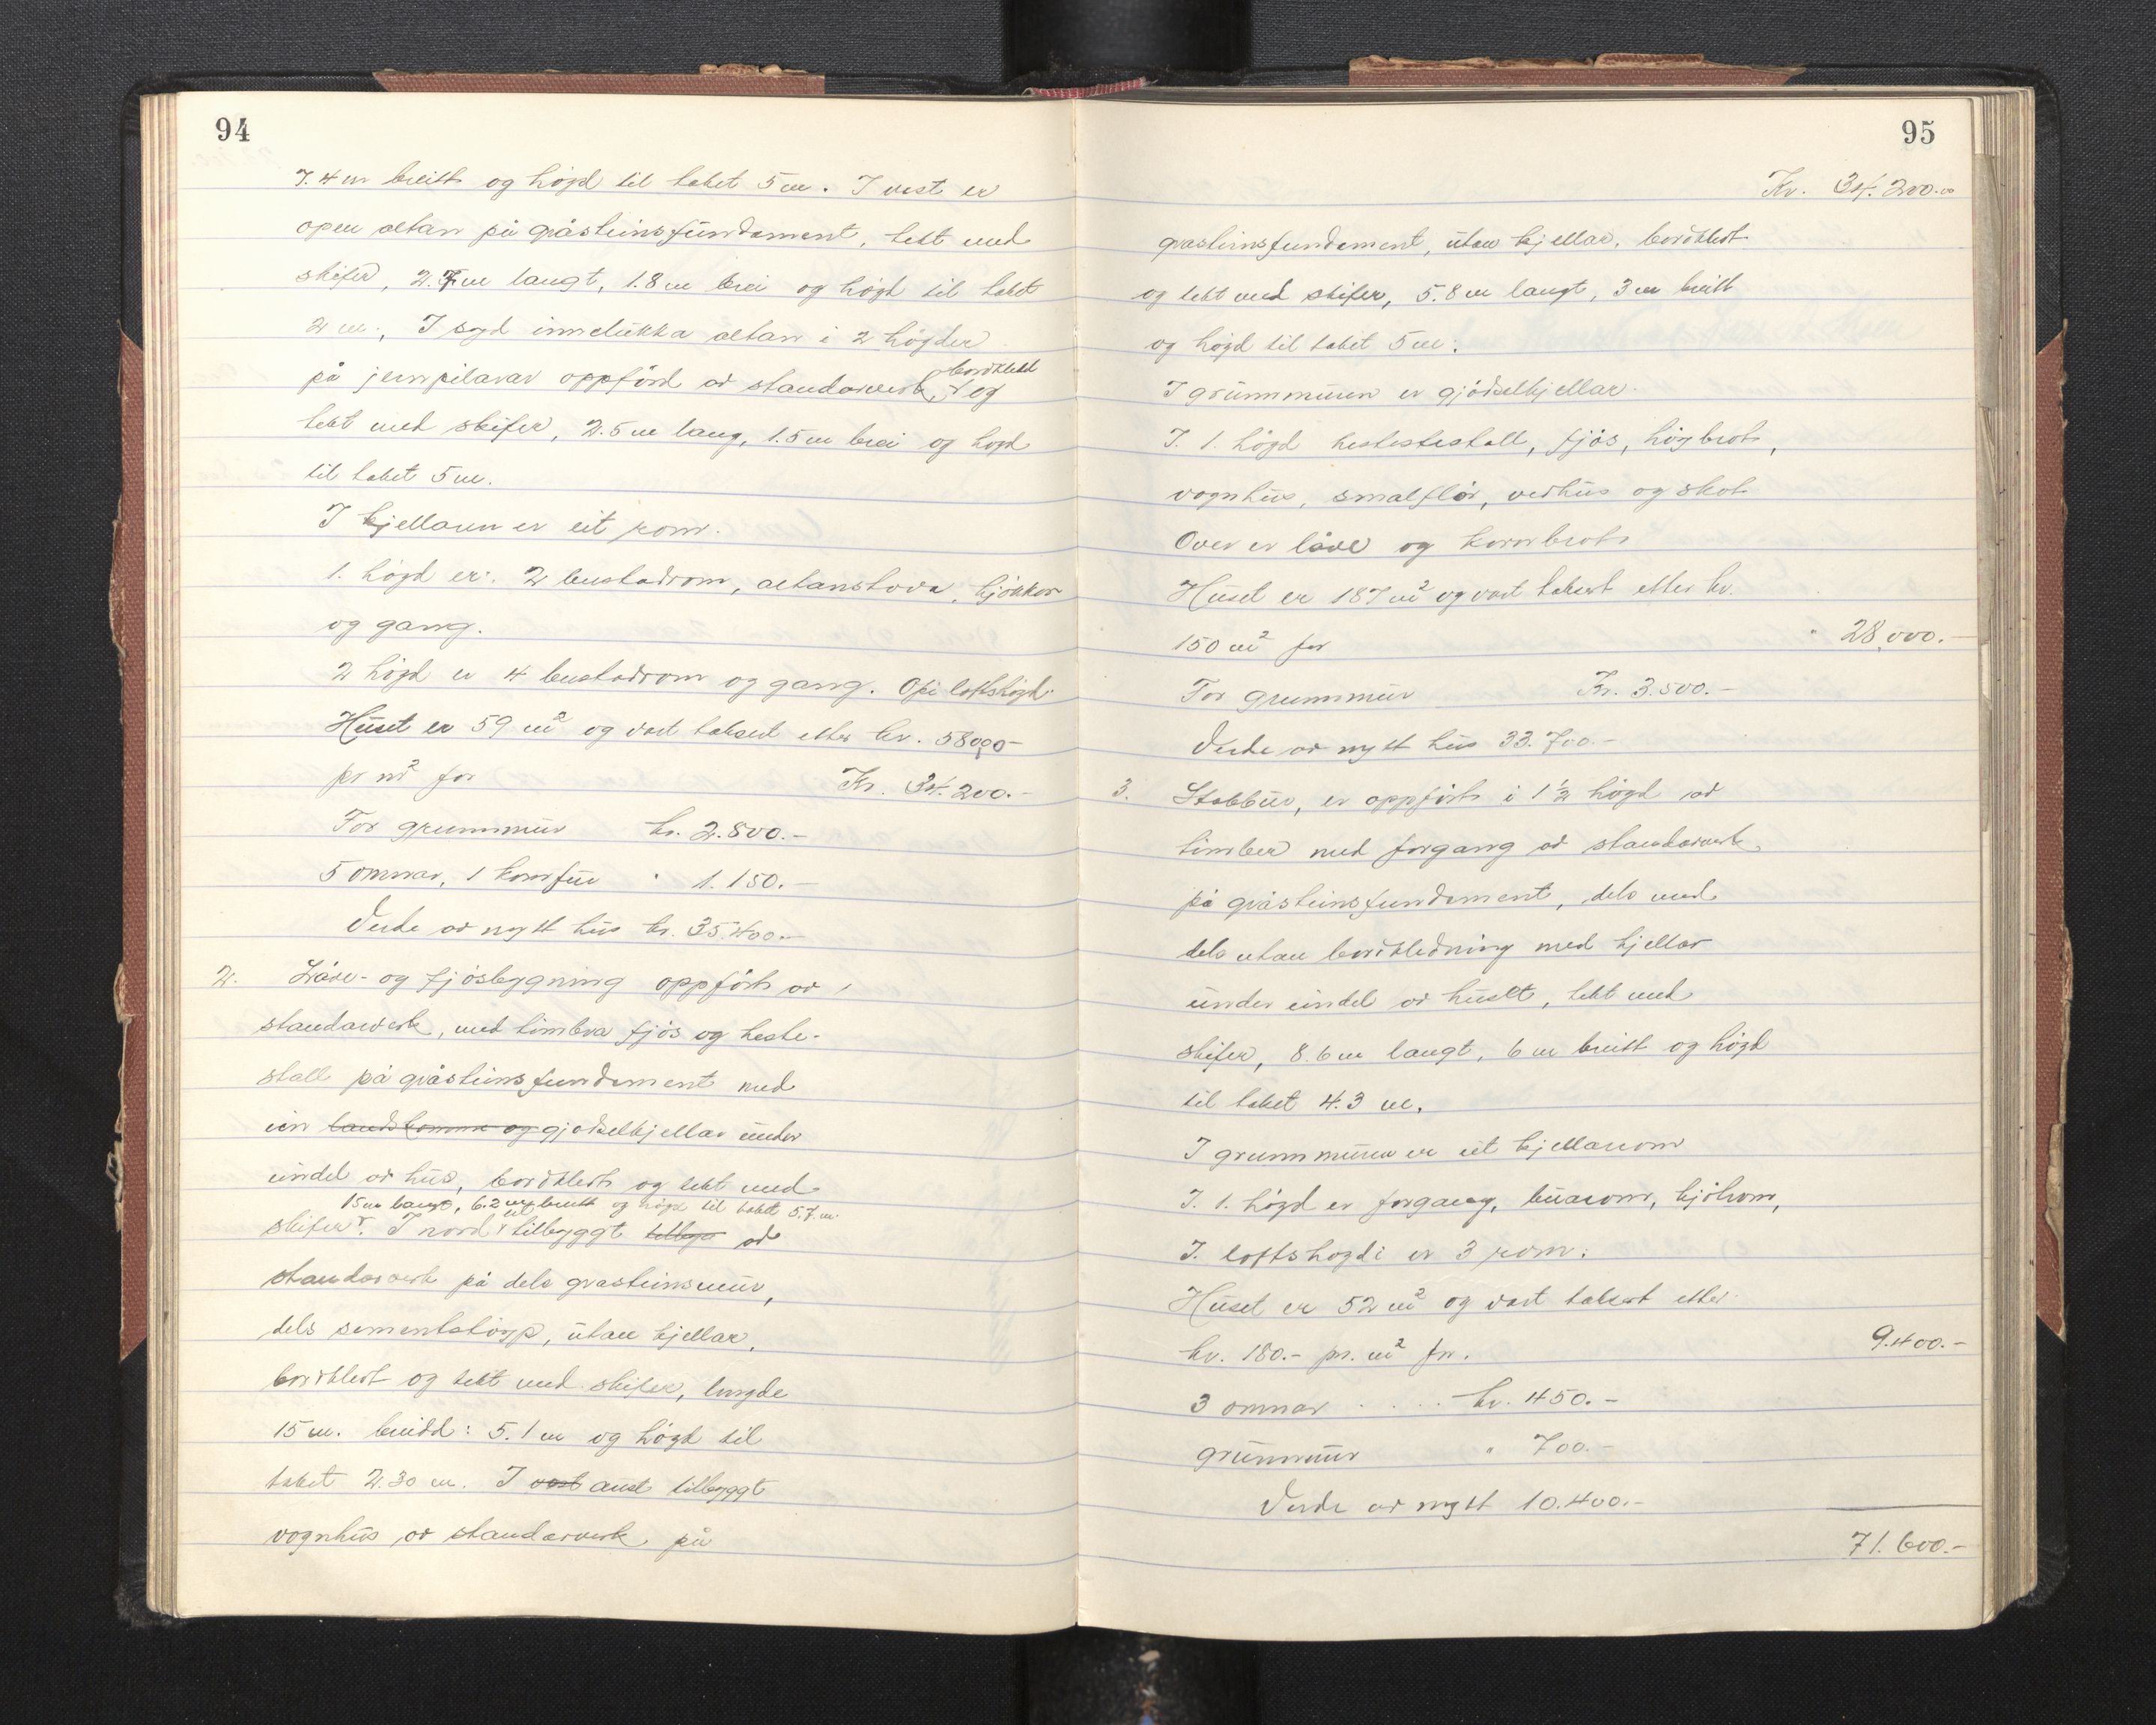 94
7.4 m breitt og högd til taket 5 m. I vest er
open altan på gråsteinsfundament, tekt med
skifer, 2.7 m langt, 1.8 m brei og högd til taket
2 m. I syd innelukka altan i 2 högder
på jernpilarar oppförd av standarverk, bordkledd og
tekt med skifer, 2.5 m lang, 1.5 m brei og högd
til taket 5 m.
I kjellaren er eit rom.
1. högd er: 2 bustadrom, altanstova, kjökken
og gang.
2 högd er 4 bustadrom og gang. Opi loftshögd.
Huset er 59 m² og vart taksert etter kr. 580,00-
pr m² for Kr. 34.200.-
For grunnmur kr. 2.800.-
5 omnar, 1 komfur " 1.150.-
Verde av nytt hus kr. 35.400.-
2. Låve- og fjösbygning oppfört av
standarverk, med timbra fjös og heste-
stall på gråsteinsfundament med
ein landkomme og gjödselkjellar under
eindel av hus, bordkledt og tekt med
15 m langt, 6.2 m breitt og högd til taket 5.7 m.
skifer. I nord eit tilbyggt tilbyg av
standarverk på dels grasteinsmur,
dels sementstöyp, utan kjellar,
bordkledt og tekt med skifer, lengde
15 m. breidd: 5.1 m og högd til
taket 2.30 m. I vest aust tilbyggt
vognhus av standarverk på
95
Kr. 34.200.00
grasteinsfundament, utan kjellar, bordkledt
og tekt med skifer, 5.8 m langt, 3 m breitt
og högd til taket 5 m.
I grunnmuren er gjödselkjellar.
I. 1. högd hestestestall, fjös, höybrot,
vognhus, smalflor, vedhus og skot
Over er låve og kornbrot
Huset er 187 m² og vart taksert etter kr.
150 m² for " 28,000.-
For grunnmur Kr. 3.500.-
Verde av nytt hus 33.700.-
3. Stabbur, er oppfört i 1½ högd av
timber med forgang av standarverk
på gråsteinsfundament, dels med
dels utan bordkledning med kjellar
under eindel av huset, tekt med
skifer, 8.6 m langt, 6 m breitt og högd
til taket 4.3 m.
I grunnmuren er eit kjellarrom
I. 1. högd er forgang, buarom, kjölrom,
I. loftshogdi er 3 rom.
Huset er 52 m² og vart taksert etter
kr. 180.- pr. m² for. 9.400.-
3 omnar . . . . kr. 450.-
grunnmur " 700.-
Verde av nytt 10.400.-
71.600.-